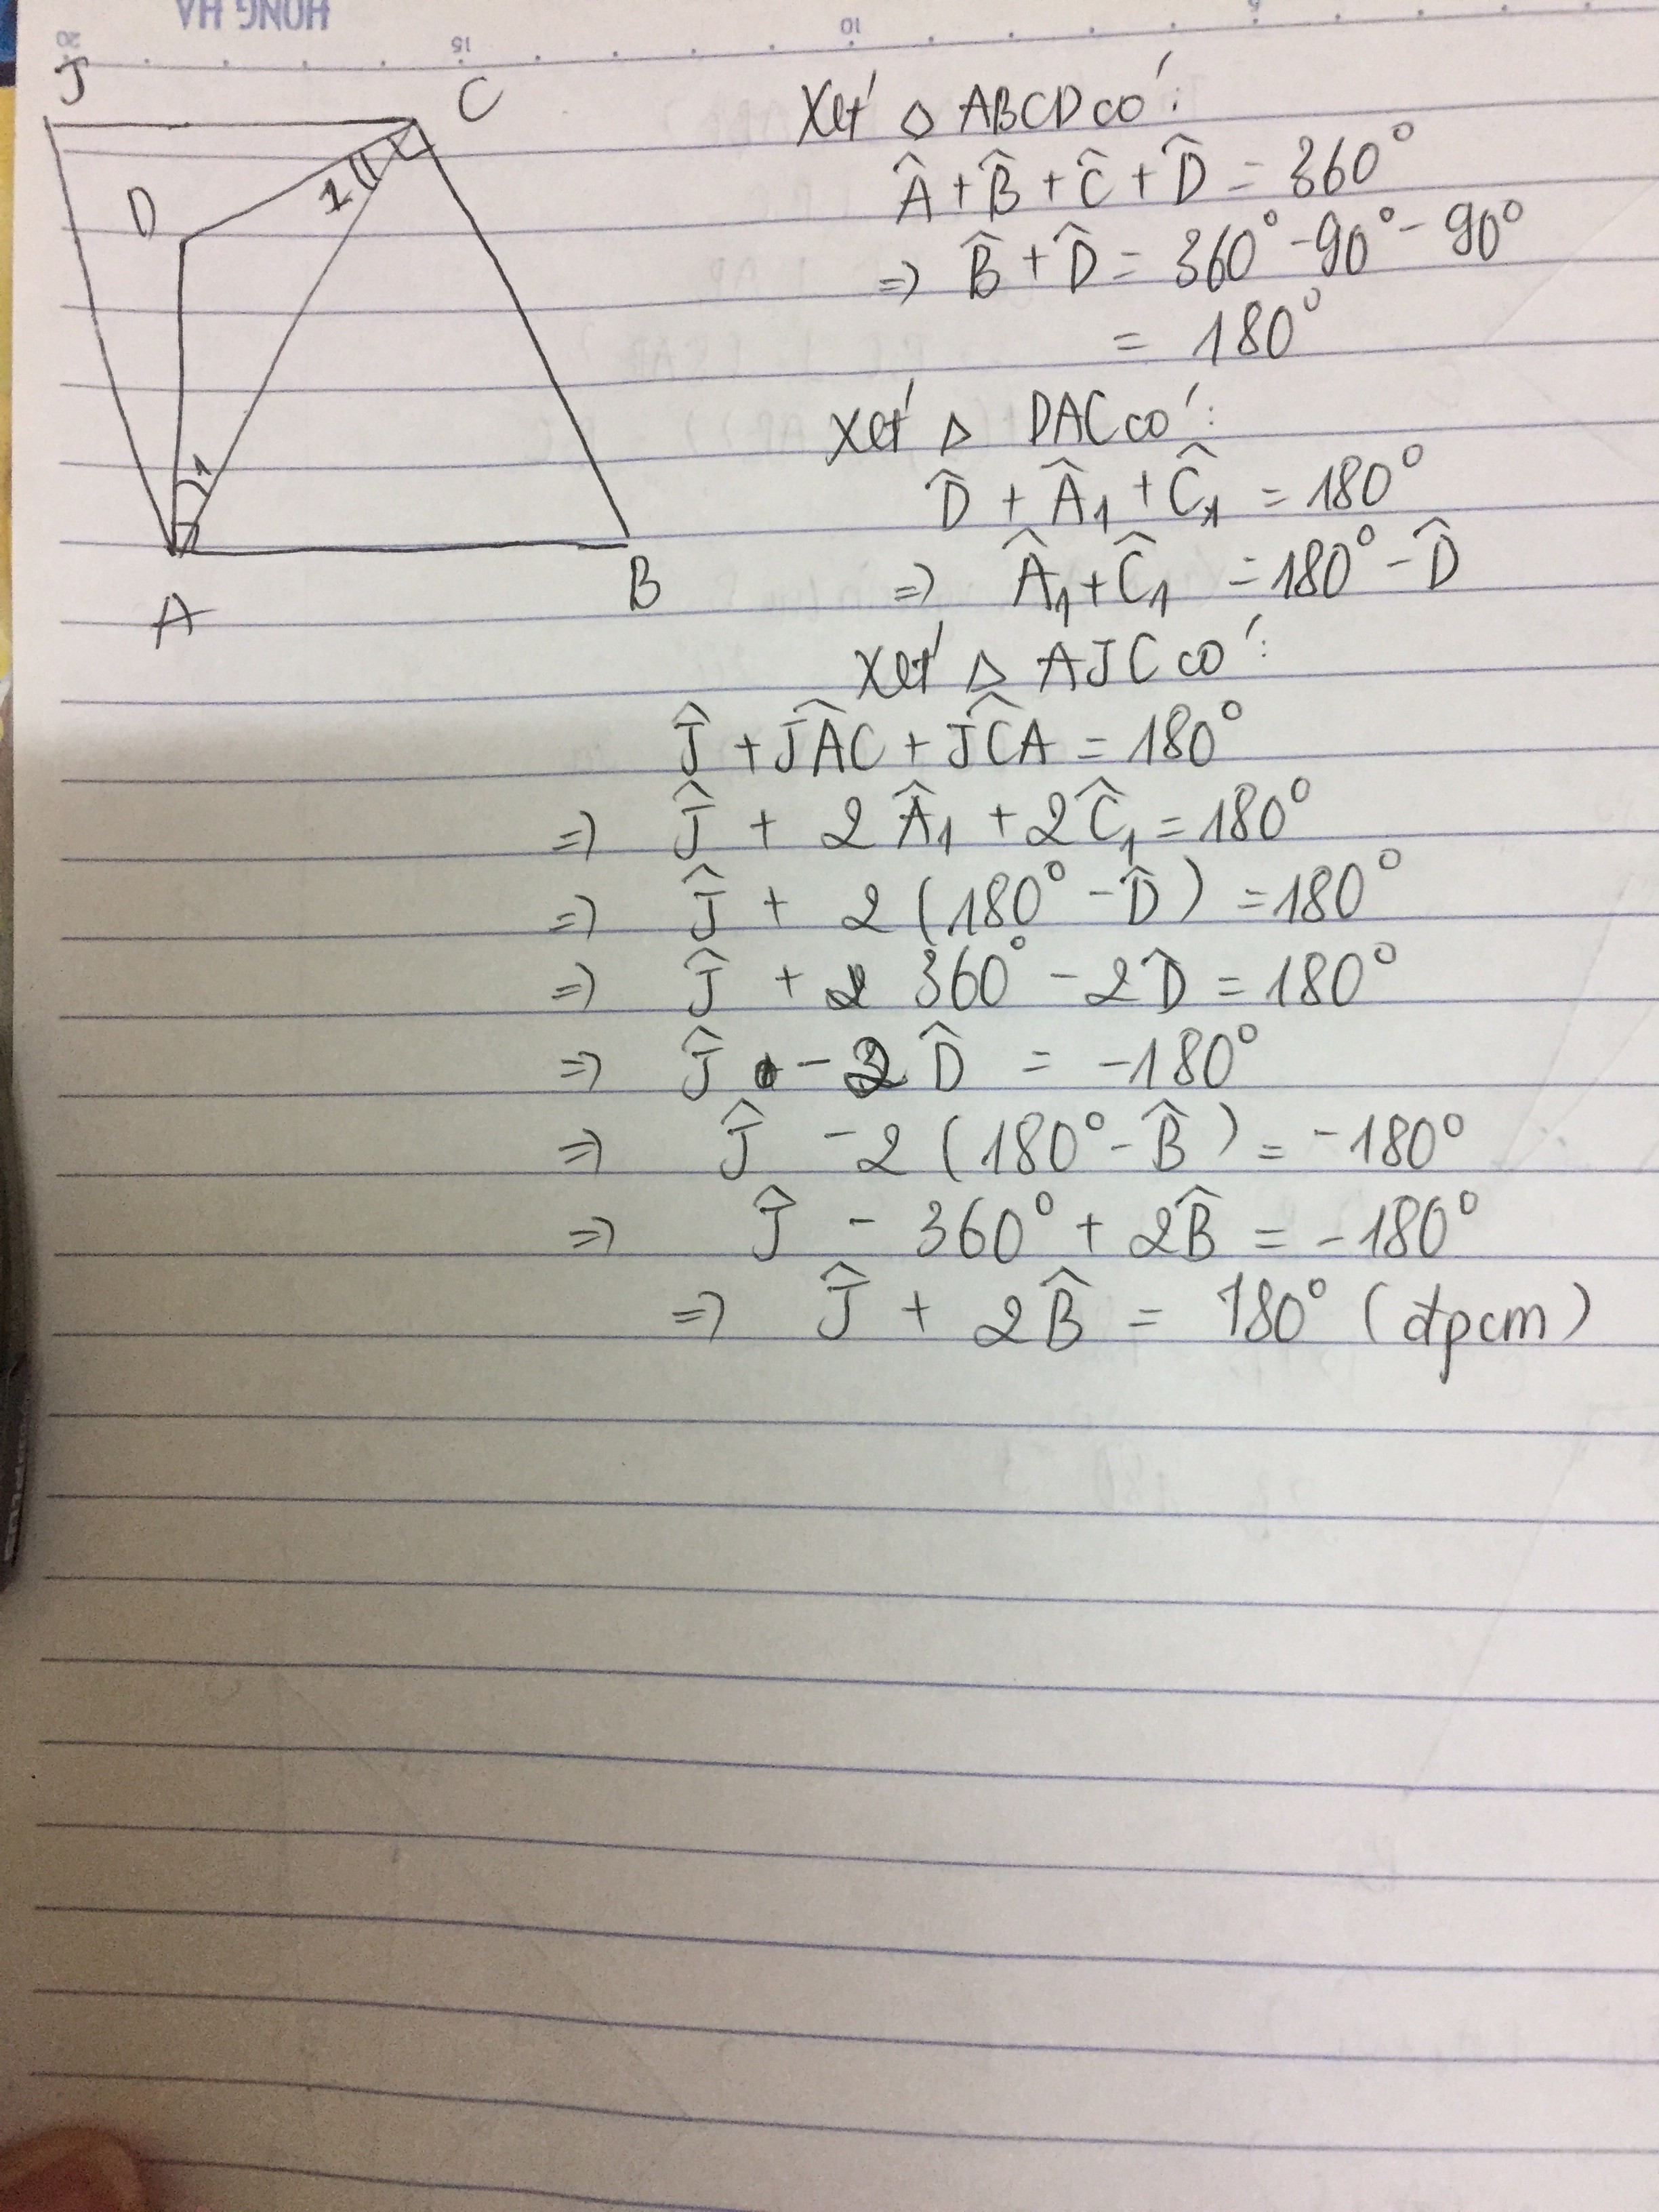 HONG HA
20 15 10 5
J
C
D
1
1
A
B
Xét ◇ ABCD có:
Â + B̂ + Ĉ + D̂ = 360°
=> B̂ + D̂ = 360° - 90° - 90°
= 180°
Xét △ DAC có:
D̂ + Â₁ + Ĉ₁ = 180°
=> Â₁ + Ĉ₁ = 180° - D̂
Xét △ AJC có:
Ĵ + JÂC + JĈA = 180°
=> Ĵ + 2Â₁ + 2Ĉ₁ = 180°
=> Ĵ + 2(180° - D̂) = 180°
=> Ĵ + 2 360° - 2D̂ = 180°
=> Ĵ - 2D̂ = -180°
=> Ĵ - 2(180° - B̂) = -180°
=> Ĵ - 360° + 2B̂ = -180°
=> Ĵ + 2B̂ = 180° (đpcm)